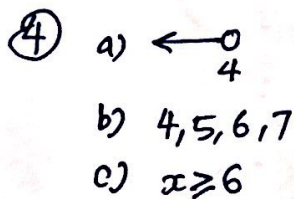 ④ a) ←○
4
b) 4, 5, 6, 7
c) x ⩾ 6